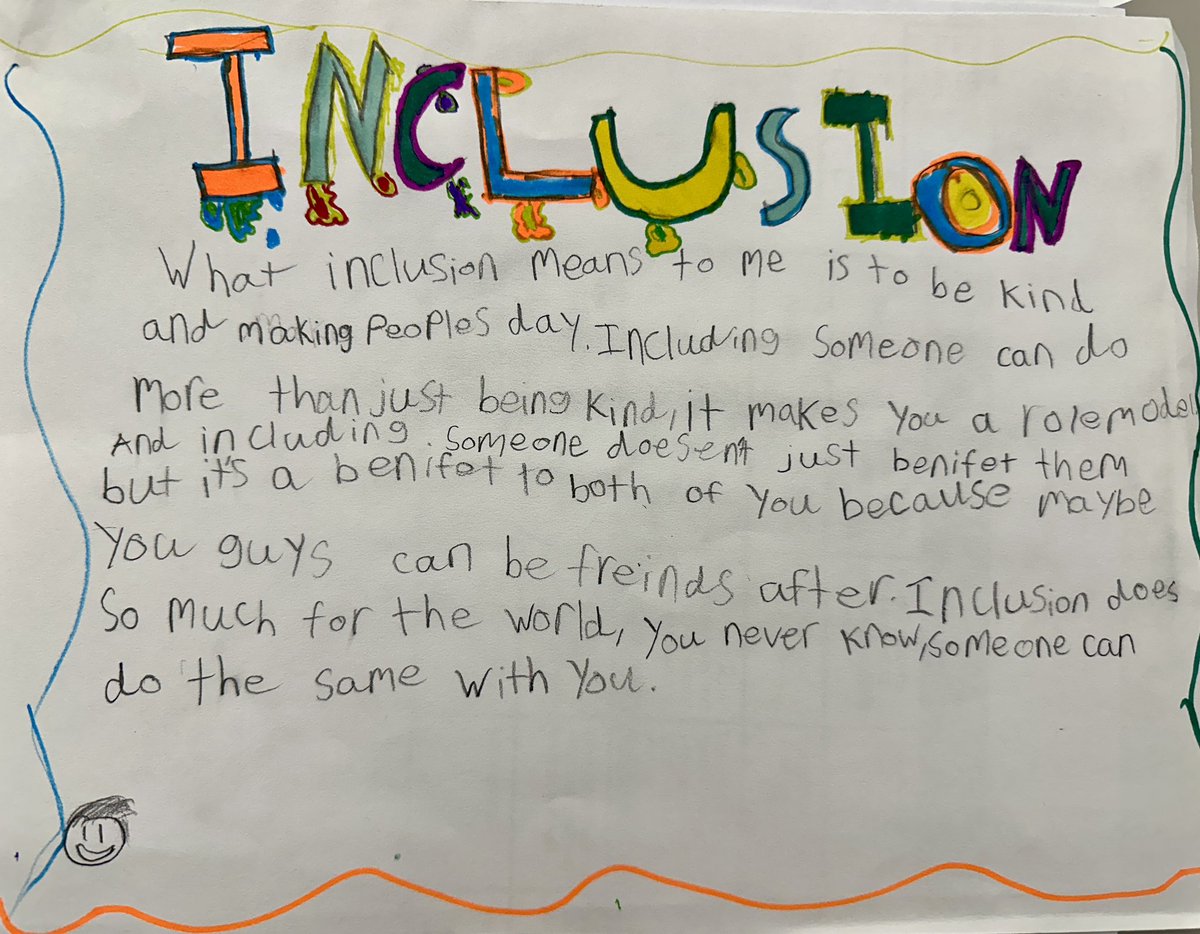 INCLUSION
What inclusion means to me is to be kind
and making peoples day. Including someone can do
more than just being kind, it makes you a rolemodel
And including. someone doesent just benifet them
but it's a benifet to both of you because maybe
you guys can be freinds after. Inclusion does
So much for the world, you never know, someone can
do the same with you.